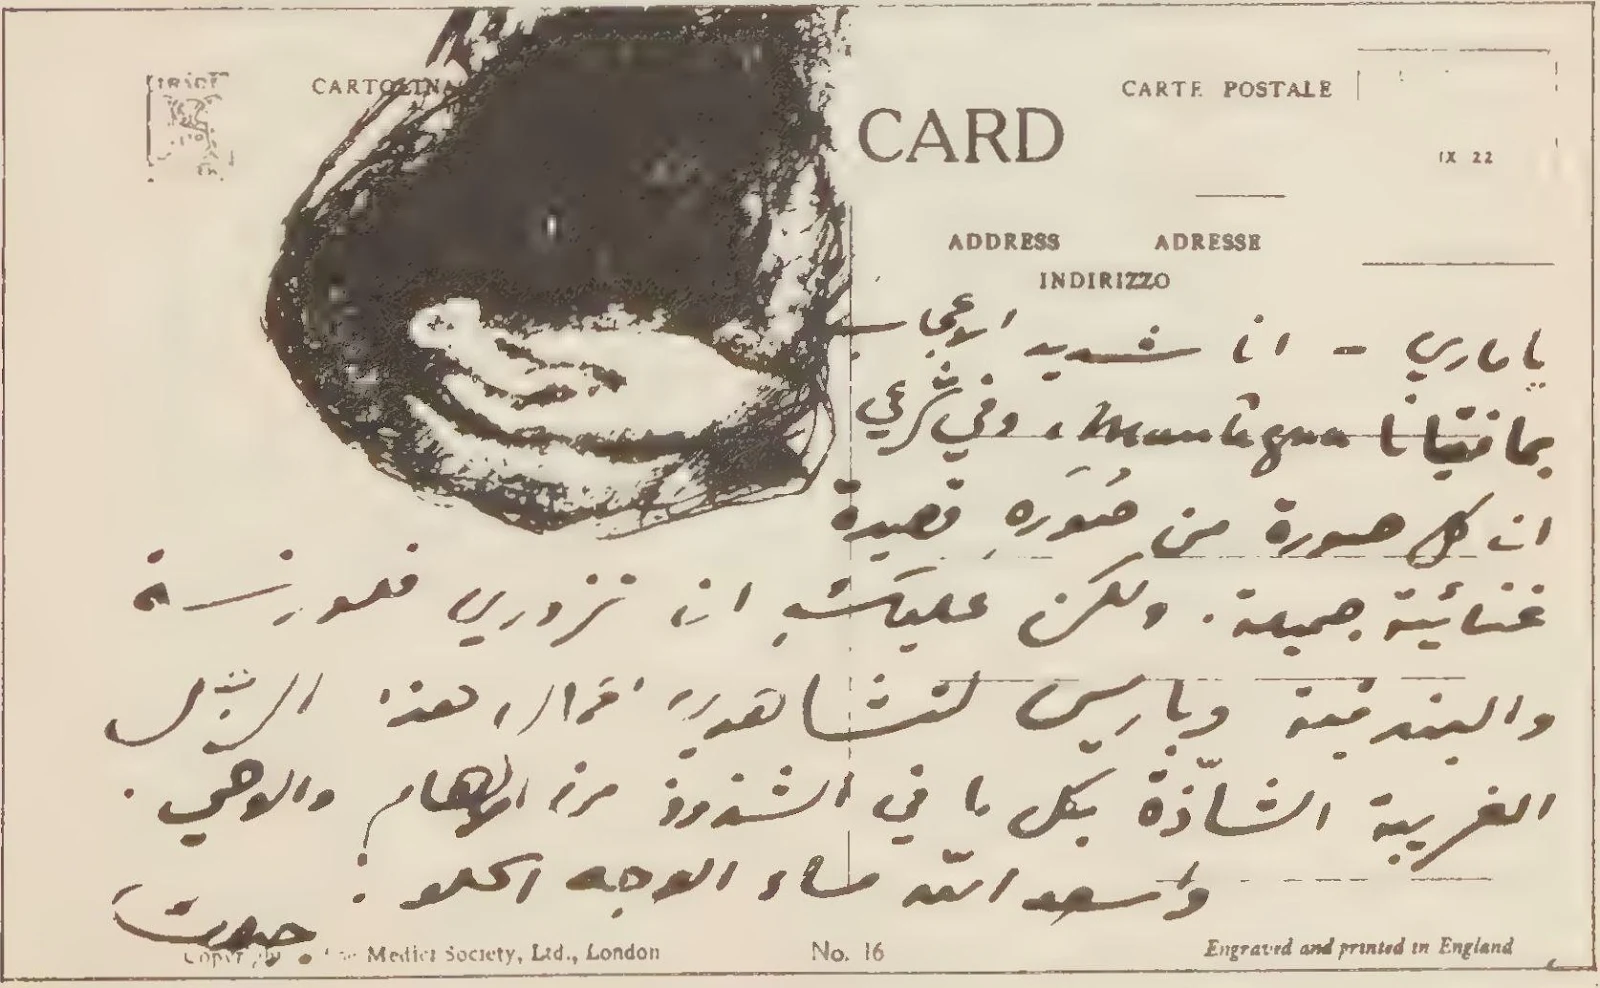 CARTOLINA
CARTE POSTALE
CARD
IX 22
ADDRESS ADRESSE
INDIRIZZO
يا ماري - انا شديد الاعجاب
بمانتيانا Mantegna، وفي شرعي
ان كل صورة من صُوَرِهِ قصيدة
غنائية جميلة. ولكن عليكِ ان تزوري فلورنسة
والبندقية وباريس لتشاهدي اعمال هذا الرجل
الغريبة الشاذّة بكل ما في الشذوذ من الإلهام والوحي.
وأسعد الله مساء الوجه الحلو:
جبران
Copyright The Medici Society, Ltd., London No. 16 Engraved and printed in England